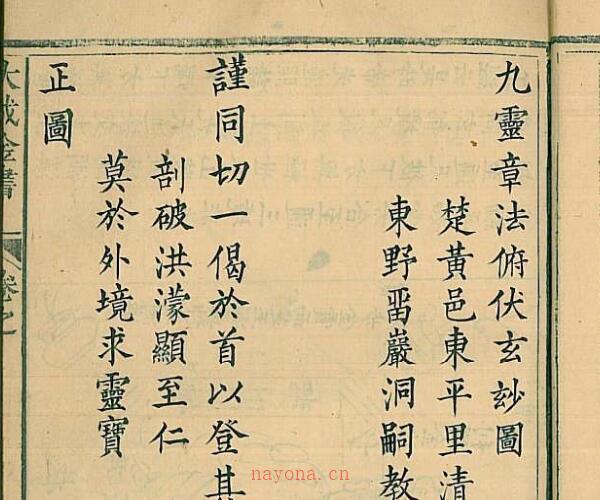 九靈章法俯伏玄玅圖
楚黃邑東平里清
東野畱巖洞嗣教
謹同切一偈於首以登其
剖破洪濛顯至仁
莫於外境求靈寶
正圖
大成金書 卷之
nayona.cn